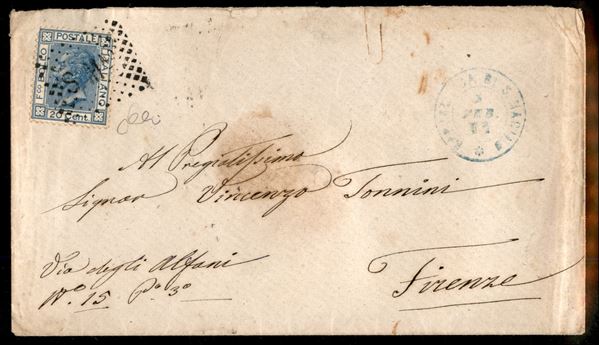 POSTALE
ITALIANO
20 Cent.
FEB.
Al Pregiatissimo
Signor Vincenzo Tonnini
Via degli Alfani
N.º 15 P.º 3º
Firenze